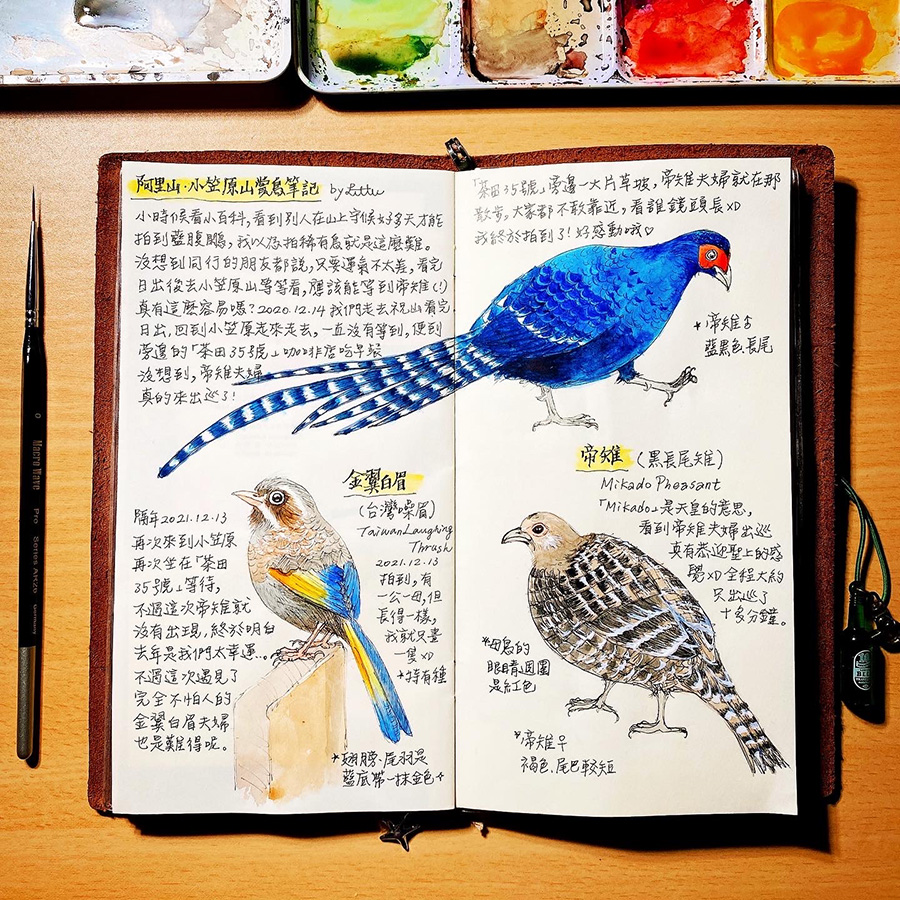 阿里山·小笠原山賞鳥筆記 by Lottu
小時候看小百科,看到別人在山上守候好多天才能
拍到藍腹鷴,我以為拍稀有鳥就是這麼難。
沒想到同行的朋友都說,只要運氣不太差,看完
日出後去小笠原山等等看,應該能等到帝雉(!)
真有這麼容易嗎?2020.12.14 我們走去祝山看完
日出,回到小笠原走來走去,一直沒有等到,便到
旁邊的「茶田35號」咖啡店吃早餐
沒想到,帝雉夫婦
真的來出巡了!
隔年2021.12.13
再次來到小笠原
再次坐在「茶田
35號」等待,
不過這次帝雉就
沒有出現,終於明白
去年是我們太幸運...
不過這次遇見了
完全不怕人的
金翼白眉夫婦
也是難得呢。
金翼白眉
(台灣噪眉)
Taiwan Laughing
Thrush
2021.12.13
拍到,有
一公一母,但
長得一樣,
我就只畫
一隻xD
*特有種
*翅膀、尾羽是
藍底帶一抹金色
「茶田35號」旁邊一大片草坡,帝雉夫婦就在那
散步,大家都不敢靠近,看誰鏡頭長xD
我終於拍到了!好感動哦♡
*帝雉♂
藍黑色、長尾
帝雉 (黑長尾雉)
Mikado Pheasant
「Mikado」是天皇的意思,
看到帝雉夫婦出巡
真有恭迎聖上的感
覺xD 全程大約
只出巡了
十多分鐘。
*母鳥的
眼睛週圍
是紅色
*帝雉♀
褐色、尾巴較短
0
Nacre Wave
Pro
Series
Germany